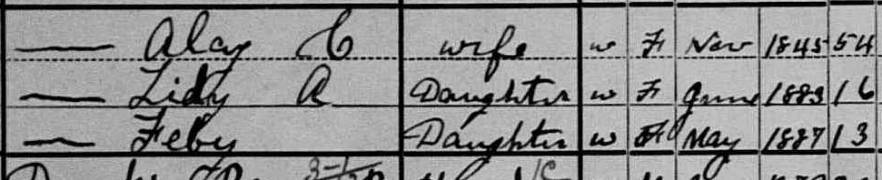 — Alcy C wife w F Nov 1845 54
— Lidy A Daughter w F June 1883 16
— Feby Daughter w F May 1887 13